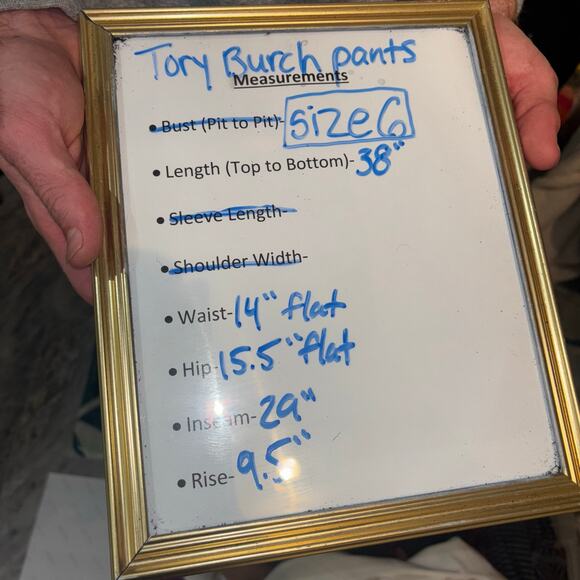 Tory Burch pants
Measurements
• Bust (Pit to Pit)- size 6
• Length (Top to Bottom)- 38"
• Sleeve Length-
• Shoulder Width-
• Waist- 14" flat
• Hip- 15.5" flat
• Inseam- 29"
• Rise- 9.5"